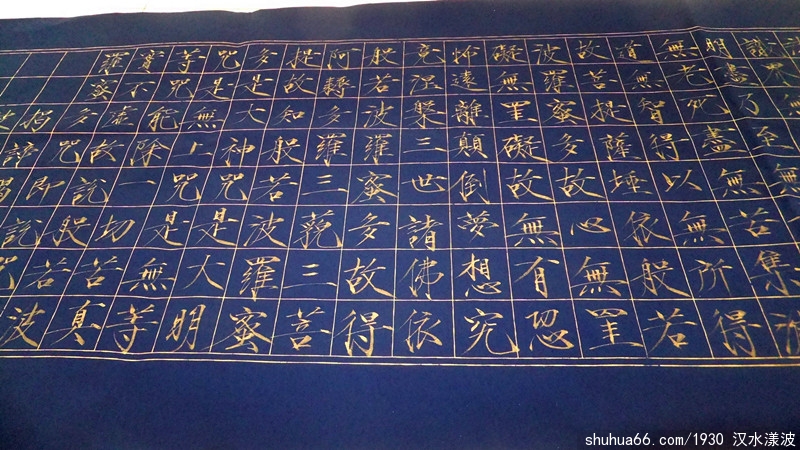 識界無無
明盡乃至無
無老死盡無苦集滅
道無智得以無所得
故菩提薩埵依般若
波羅蜜多故心無罣
礙無罣礙故無有恐
怖遠離顛倒夢想究
竟涅槃三世諸佛依
般若波羅蜜多故得
阿耨多羅三藐三菩
提故知般若波羅蜜
多是大神咒是大明
咒是無上咒是無等
等咒能除一切苦真
實不虛故說般若波
羅蜜多咒即說咒
shuhua66.com/1930 汉水漾波